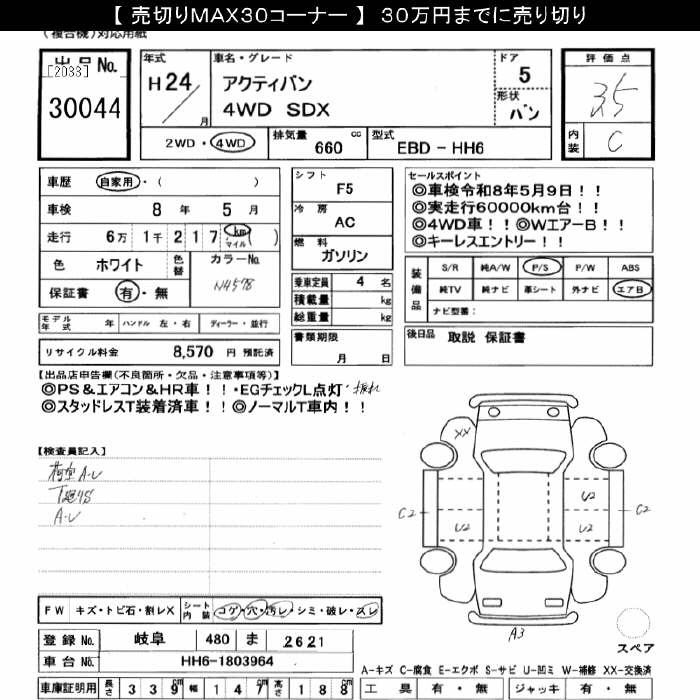 【 売切りMAX30コーナー 】 30万円までに売り切り
(複合機)対応用紙
出品No.
[2033]
30044
年式
H24
月
車名・グレード
アクティバン
4WD SDX
ドア
5
形状
バン
2WD・4WD
排気量 660 cc
型式 EBD - HH6
評価点
3.5
内装
C
車歴 自家用・( )
車検 8 年 5 月
走行 6万 1千 2 1 7 km マイル ( )
色 ホワイト 色替 カラーNo. NH578
保証書 有・無
モデル年式 年 ハンドル 左・右 ディーラー・並行
リサイクル料金 8,570 円 預託済
シフト
F5
冷房
AC
燃料
ガソリン
乗車定員 4 名
積載量 kg
総重量 kg
書類期限
月 日
セールスポイント
◎車検令和8年5月9日!!
◎実走行60000km台!!
◎4WD車!!◎WエアーB!!
◎キーレスエントリー!!
装備品
S/R 純A/W P/S P/W ABS
純TV 純ナビ 革シート 外ナビ エアB
ナビ型番:
後日品 取説 保証書
【出品店申告欄(不良箇所・欠品・注意事項等)】
◎PS&エアコン&HR車!!・EGチェックL点灯・振れ
◎スタッドレスT装着済車!!◎ノーマルT車内!!
【検査員記入】
荷室A-レ
A-レ
XX
C2
U2
U2
U2
U2
C2
A3
スペア
FW キズ・トビ石・割レX
シート内装 コゲ・穴・汚レ・シミ・破レ・スレ
登録No. 岐阜 480 ま 2621
車台No. HH6-1803964
車庫証明用 長さ 339 幅 147 高さ 188
A-キズ C-腐食 E-エクボ S-サビ U-凹ミ W-補修 XX-交換済
工具 有・無 ジャッキ 有・無